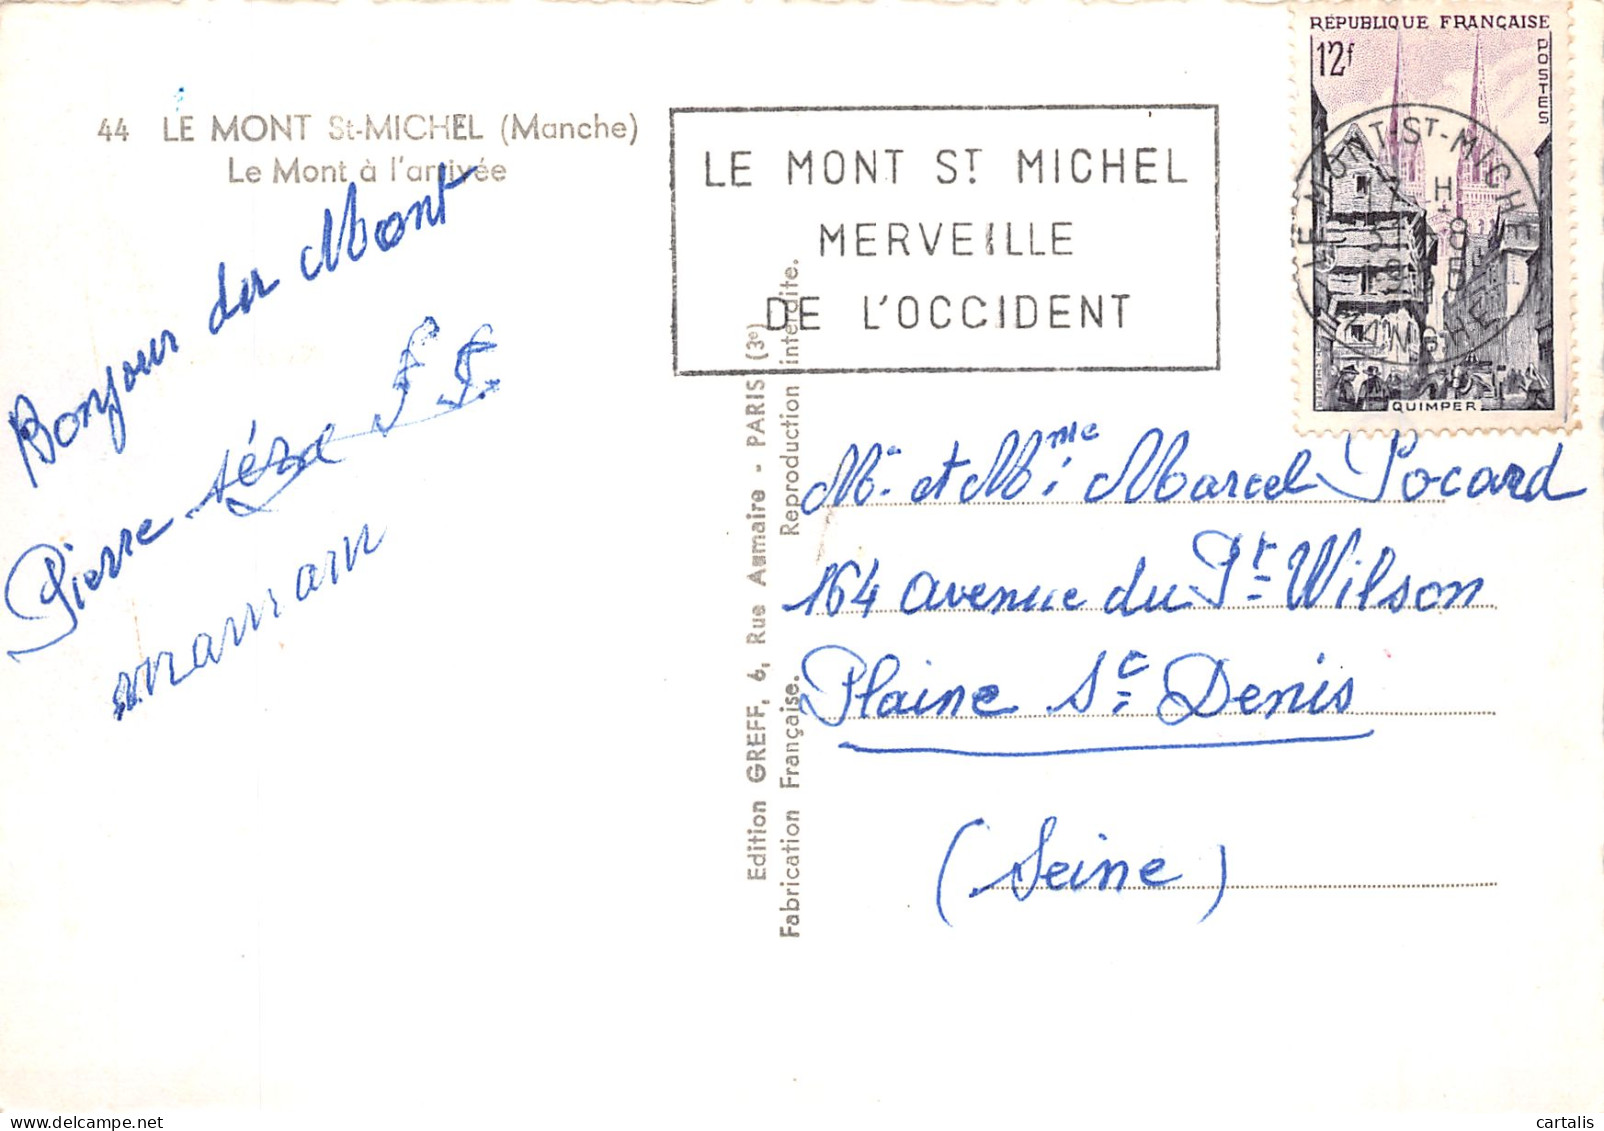 44 LE MONT St-MICHEL (Manche)
Le Mont à l'arrivée
Bonjour du Mont
Pierre
LE MONT ST MICHEL
MERVEILLE
DE L'OCCIDENT
RÉPUBLIQUE FRANÇAISE
12f
POSTES
QUIMPER
LE MONT-ST-MICHEL
MANCHE
Edition GREFF, 6, Rue Aumaire - PARIS (3e)
Fabrication Française. Reproduction interdite.
Mr et Mme Marcel Pocard
164 avenue du Pt Wilson
Plaine St Denis
(Seine)
cartalis